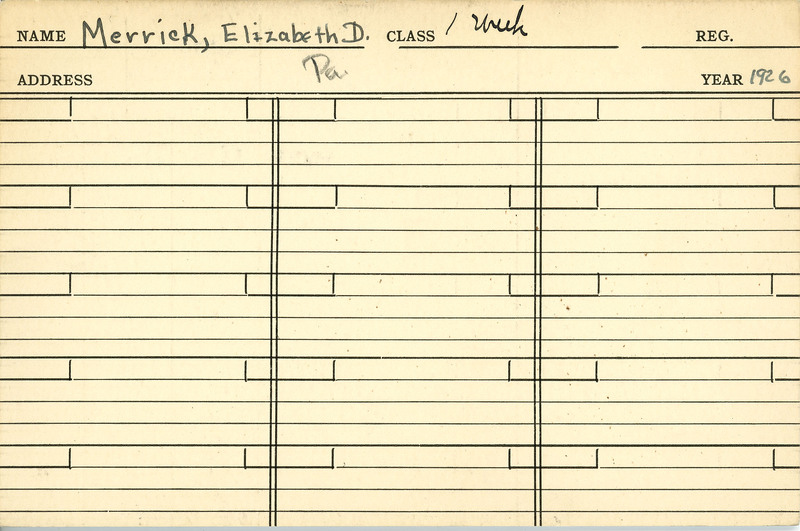 NAME Merrick, Elizabeth D. CLASS 1 Week REG.
ADDRESS Pa. YEAR 1926